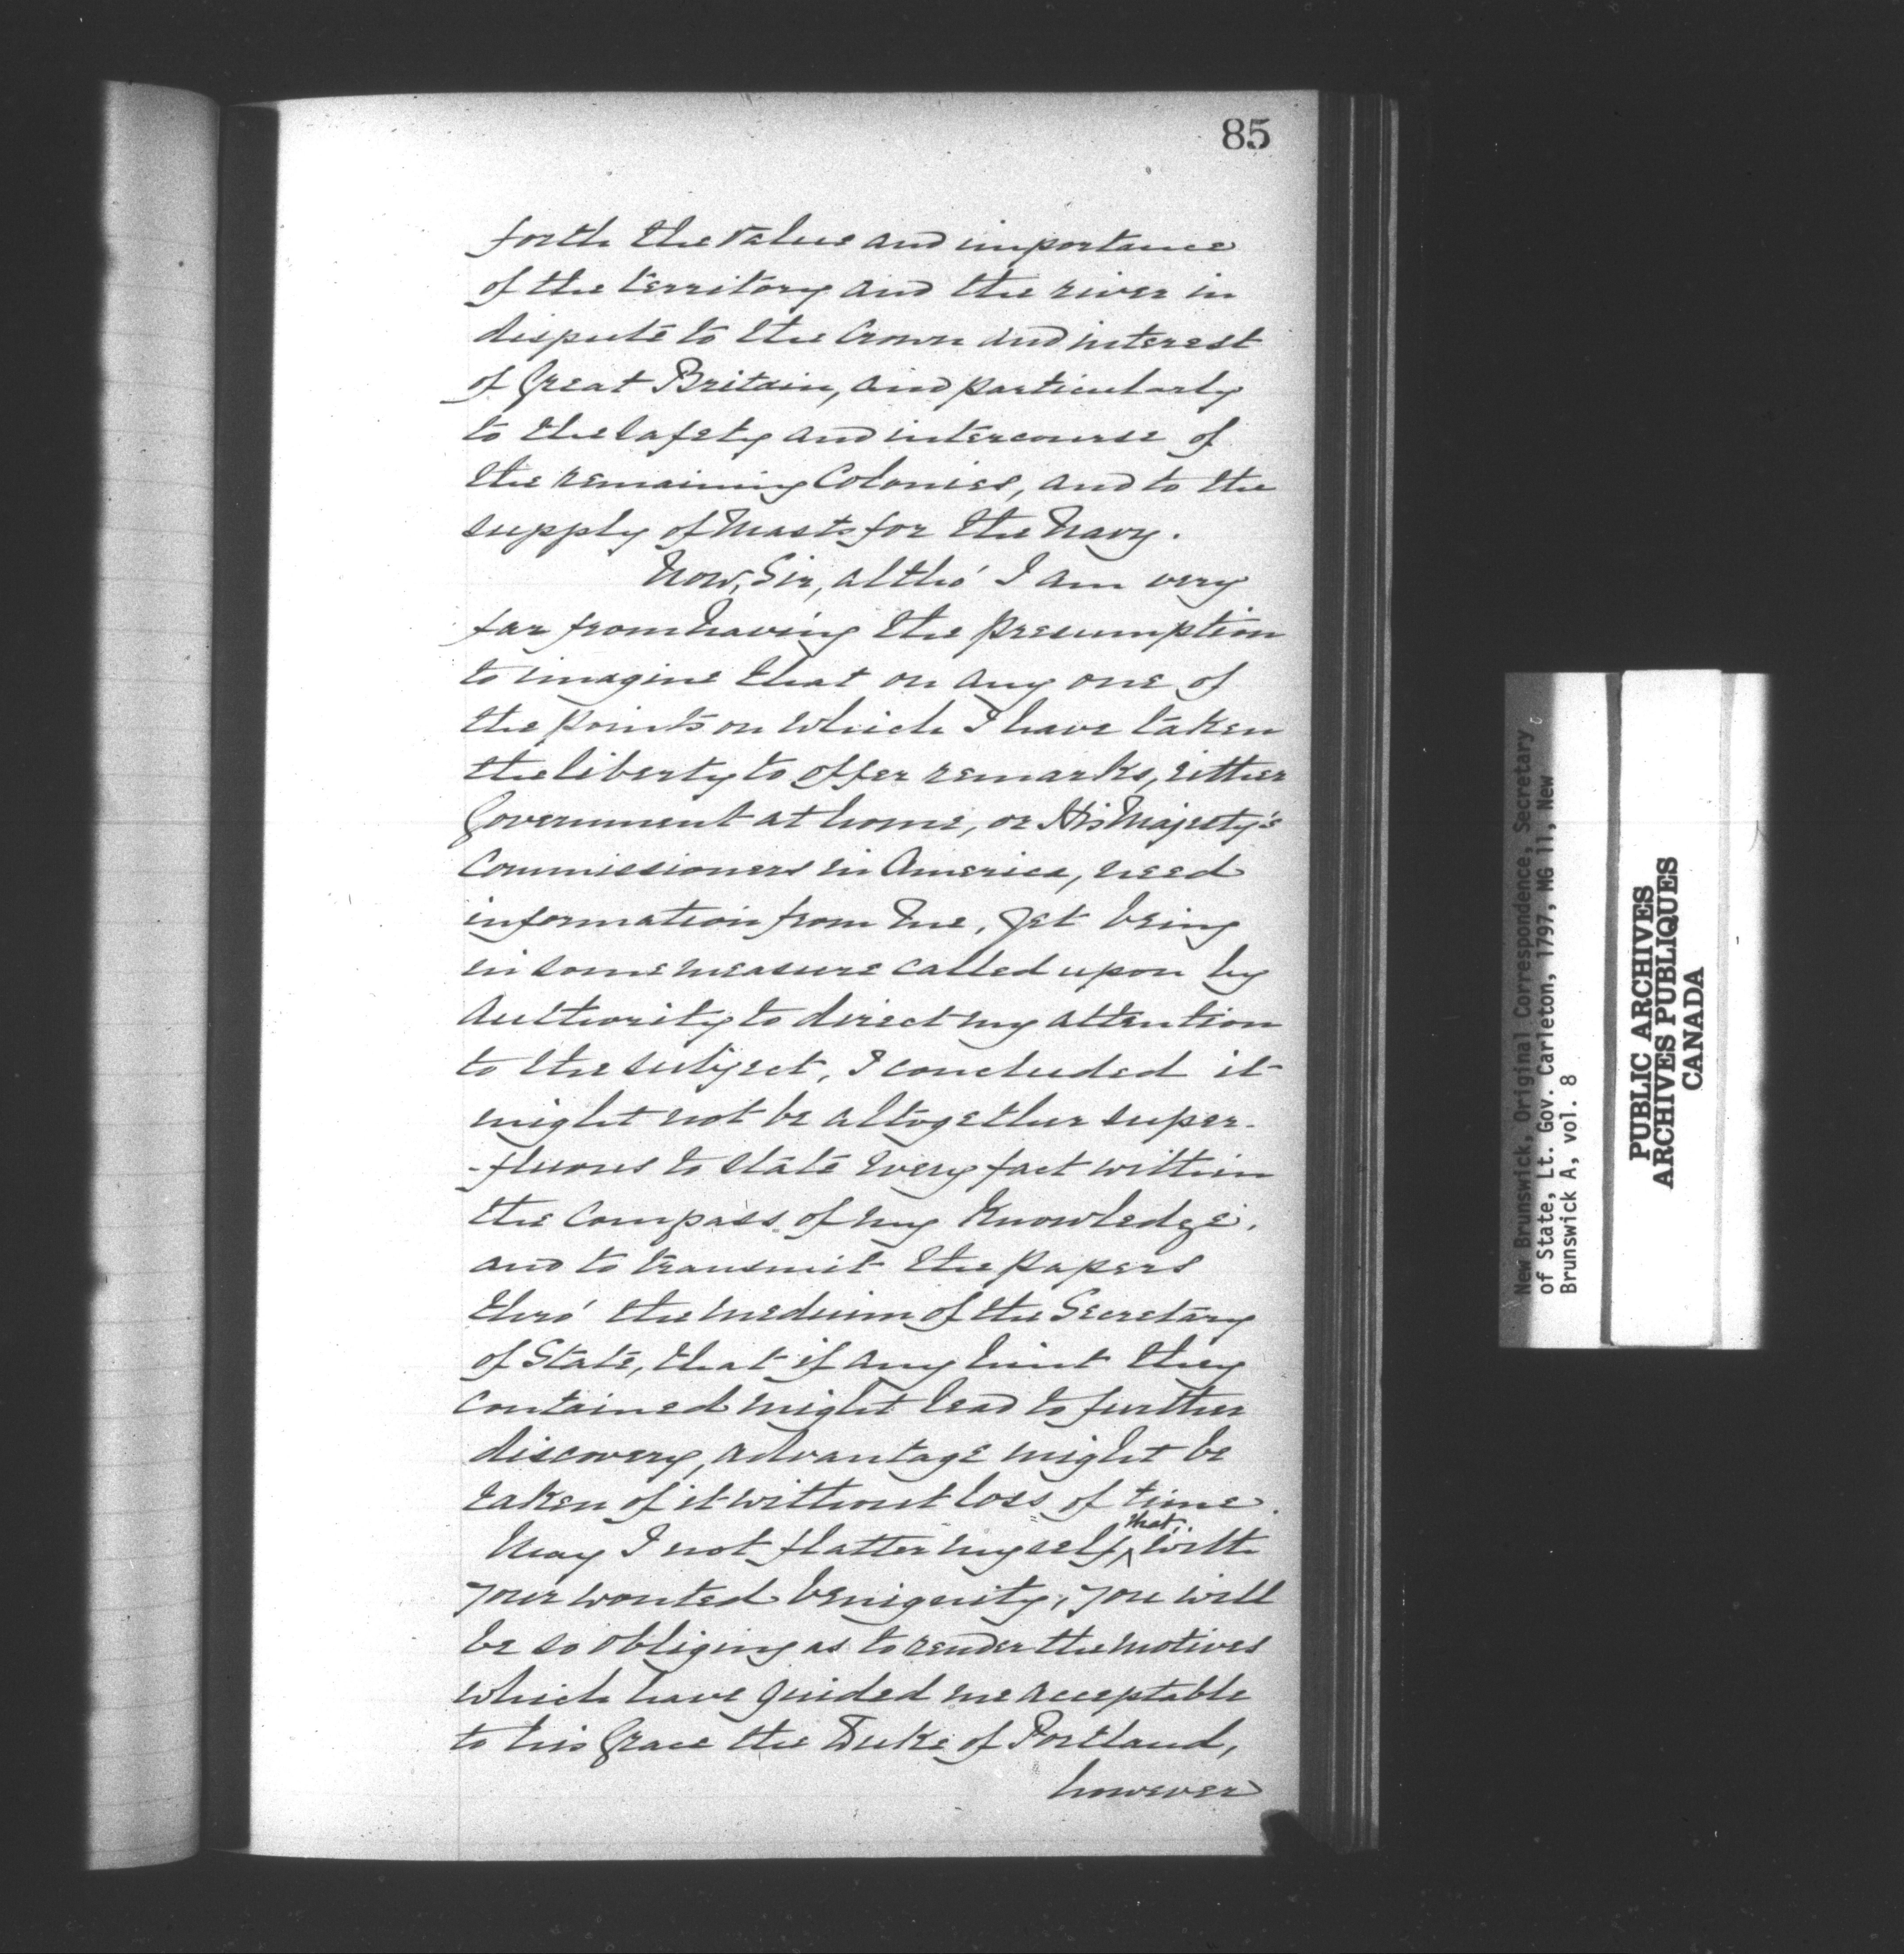 85
forth the value and importance
of the territory and the river in
dispute to the Crown and interest
of Great Britain, and particularly
to the safety and intercourse of
the remaining Colonies, and to the
supply of Masts for the Navy.
Now, Sir, altho' I am very
far from having the presumption
to imagine that on any one of
the points on which I have taken
the liberty to offer remarks, either
Government at home, or His Majesty's
Commissioners in America, need
information from me, yet being
in some measure called upon by
Authority to direct my attention
to the subject, I concluded it
might not be altogether super-
-fluous to state every fact within
the compass of my knowledge,
and to transmit the papers
thro' the medium of the Secretary
of State, that if any hint they
contained might lead to further
discovery, advantage might be
taken of it without loss of time.
May I not flatter myself, that, with
your wonted benignity, you will
be so obliging as to render the motives
which have guided me acceptable
to his Grace the Duke of Portland,
however
New Brunswick, Original Correspondence, Secretary
of State, Lt. Gov. Carleton, 1797, MG 11, New
Brunswick A, vol. 8
PUBLIC ARCHIVES
ARCHIVES PUBLIQUES
CANADA